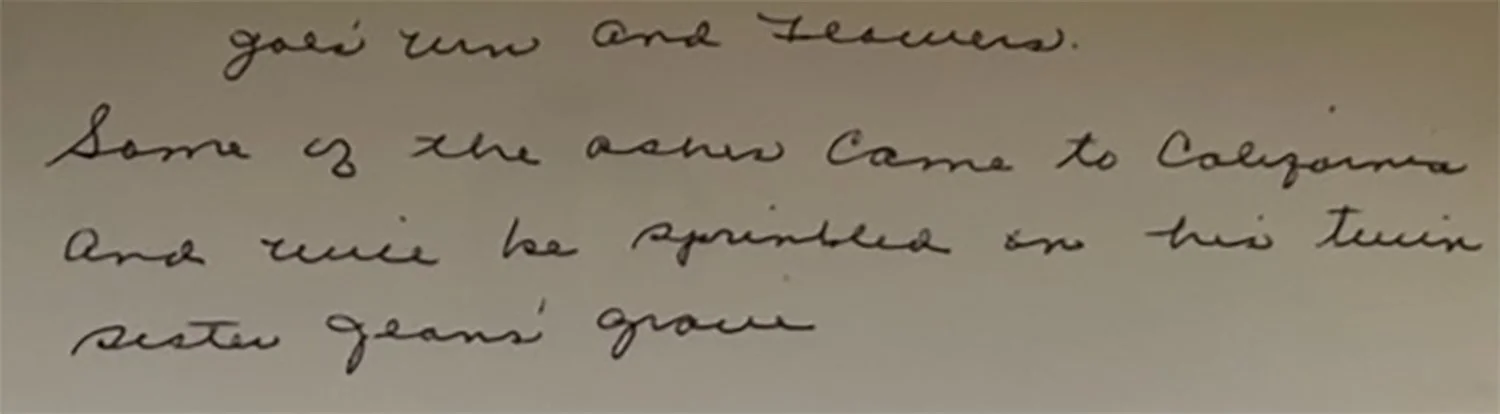 goes' urn and Flowers.
Some of the ashes came to California
And will be sprinkled on his twin
sister Jeans' grave